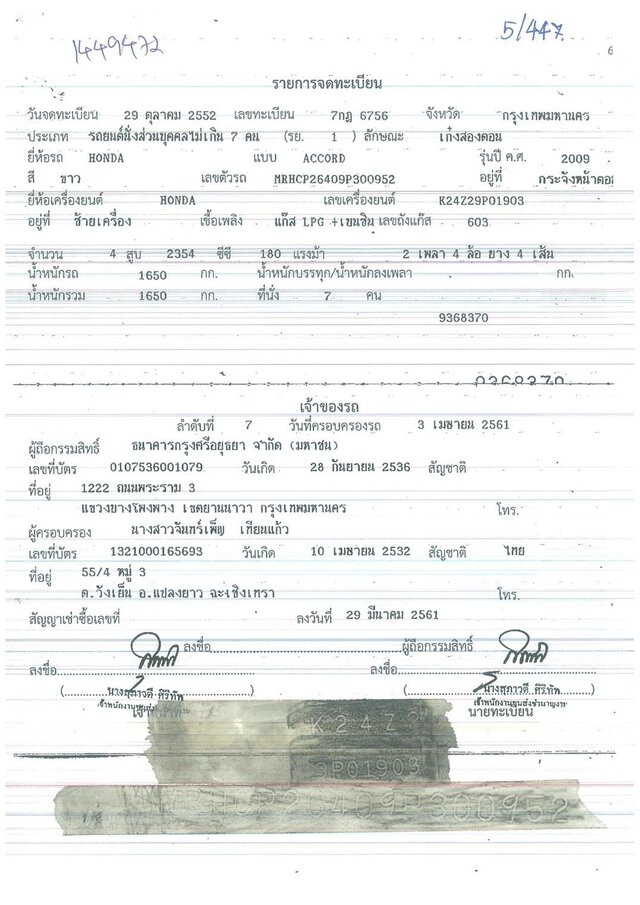 1449472
5/447.
6
รายการจดทะเบียน
วันจดทะเบียน 29 ตุลาคม 2552 เลขทะเบียน 7กฎ 6756 จังหวัด กรุงเทพมหานคร
ประเภท รถยนต์นั่งส่วนบุคคลไม่เกิน 7 คน (รย. 1 ) ลักษณะ เก๋งสองตอน
ยี่ห้อรถ HONDA แบบ ACCORD รุ่นปี ค.ศ. 2009
สี ขาว เลขตัวรถ MRHCP26409P300952 อยู่ที่ กระจังหน้าตอ
ยี่ห้อเครื่องยนต์ HONDA เลขเครื่องยนต์ K24Z29P01903
อยู่ที่ ซ้ายเครื่อง เชื้อเพลิง แก๊ส LPG +เบนซิน เลขถังแก๊ส 603
จำนวน 4 สูบ 2354 ซีซี 180 แรงม้า 2 เพลา 4 ล้อ ยาง 4 เส้น
น้ำหนักรถ 1650 กก. น้ำหนักบรรทุก/น้ำหนักลงเพลา กก.
น้ำหนักรวม 1650 กก. ที่นั่ง 7 คน
9368370
เจ้าของรถ
ลำดับที่ 7 วันที่ครอบครองรถ 3 เมษายน 2561
ผู้ถือกรรมสิทธิ์ ธนาคารกรุงศรีอยุธยา จำกัด (มหาชน)
เลขที่บัตร 0107536001079 วันเกิด 28 กันยายน 2536 สัญชาติ
ที่อยู่ 1222 ถนนพระราม 3
แขวงบางโพงพาง เขตยานนาวา กรุงเทพมหานคร โทร.
ผู้ครอบครอง นางสาวจันทร์เพ็ญ เทียนแก้ว
เลขที่บัตร 1321000165693 วันเกิด 10 เมษายน 2532 สัญชาติ ไทย
ที่อยู่ 55/4 หมู่ 3
ต.วังเย็น อ.แปลงยาว ฉะเชิงเทรา โทร.
สัญญาเช่าซื้อเลขที่ ลงวันที่ 29 มีนาคม 2561
ลงชื่อ ผู้ถือกรรมสิทธิ์
ลงชื่อ ลงชื่อ
(นางสุภาวดี ศิริทัพ) (นางสุภาวดี ศิริทัพ)
เจ้าพนักงานขนส่งชำนาญงาน
นายทะเบียน
K24Z2
9P01903
MRHCP26409P300952